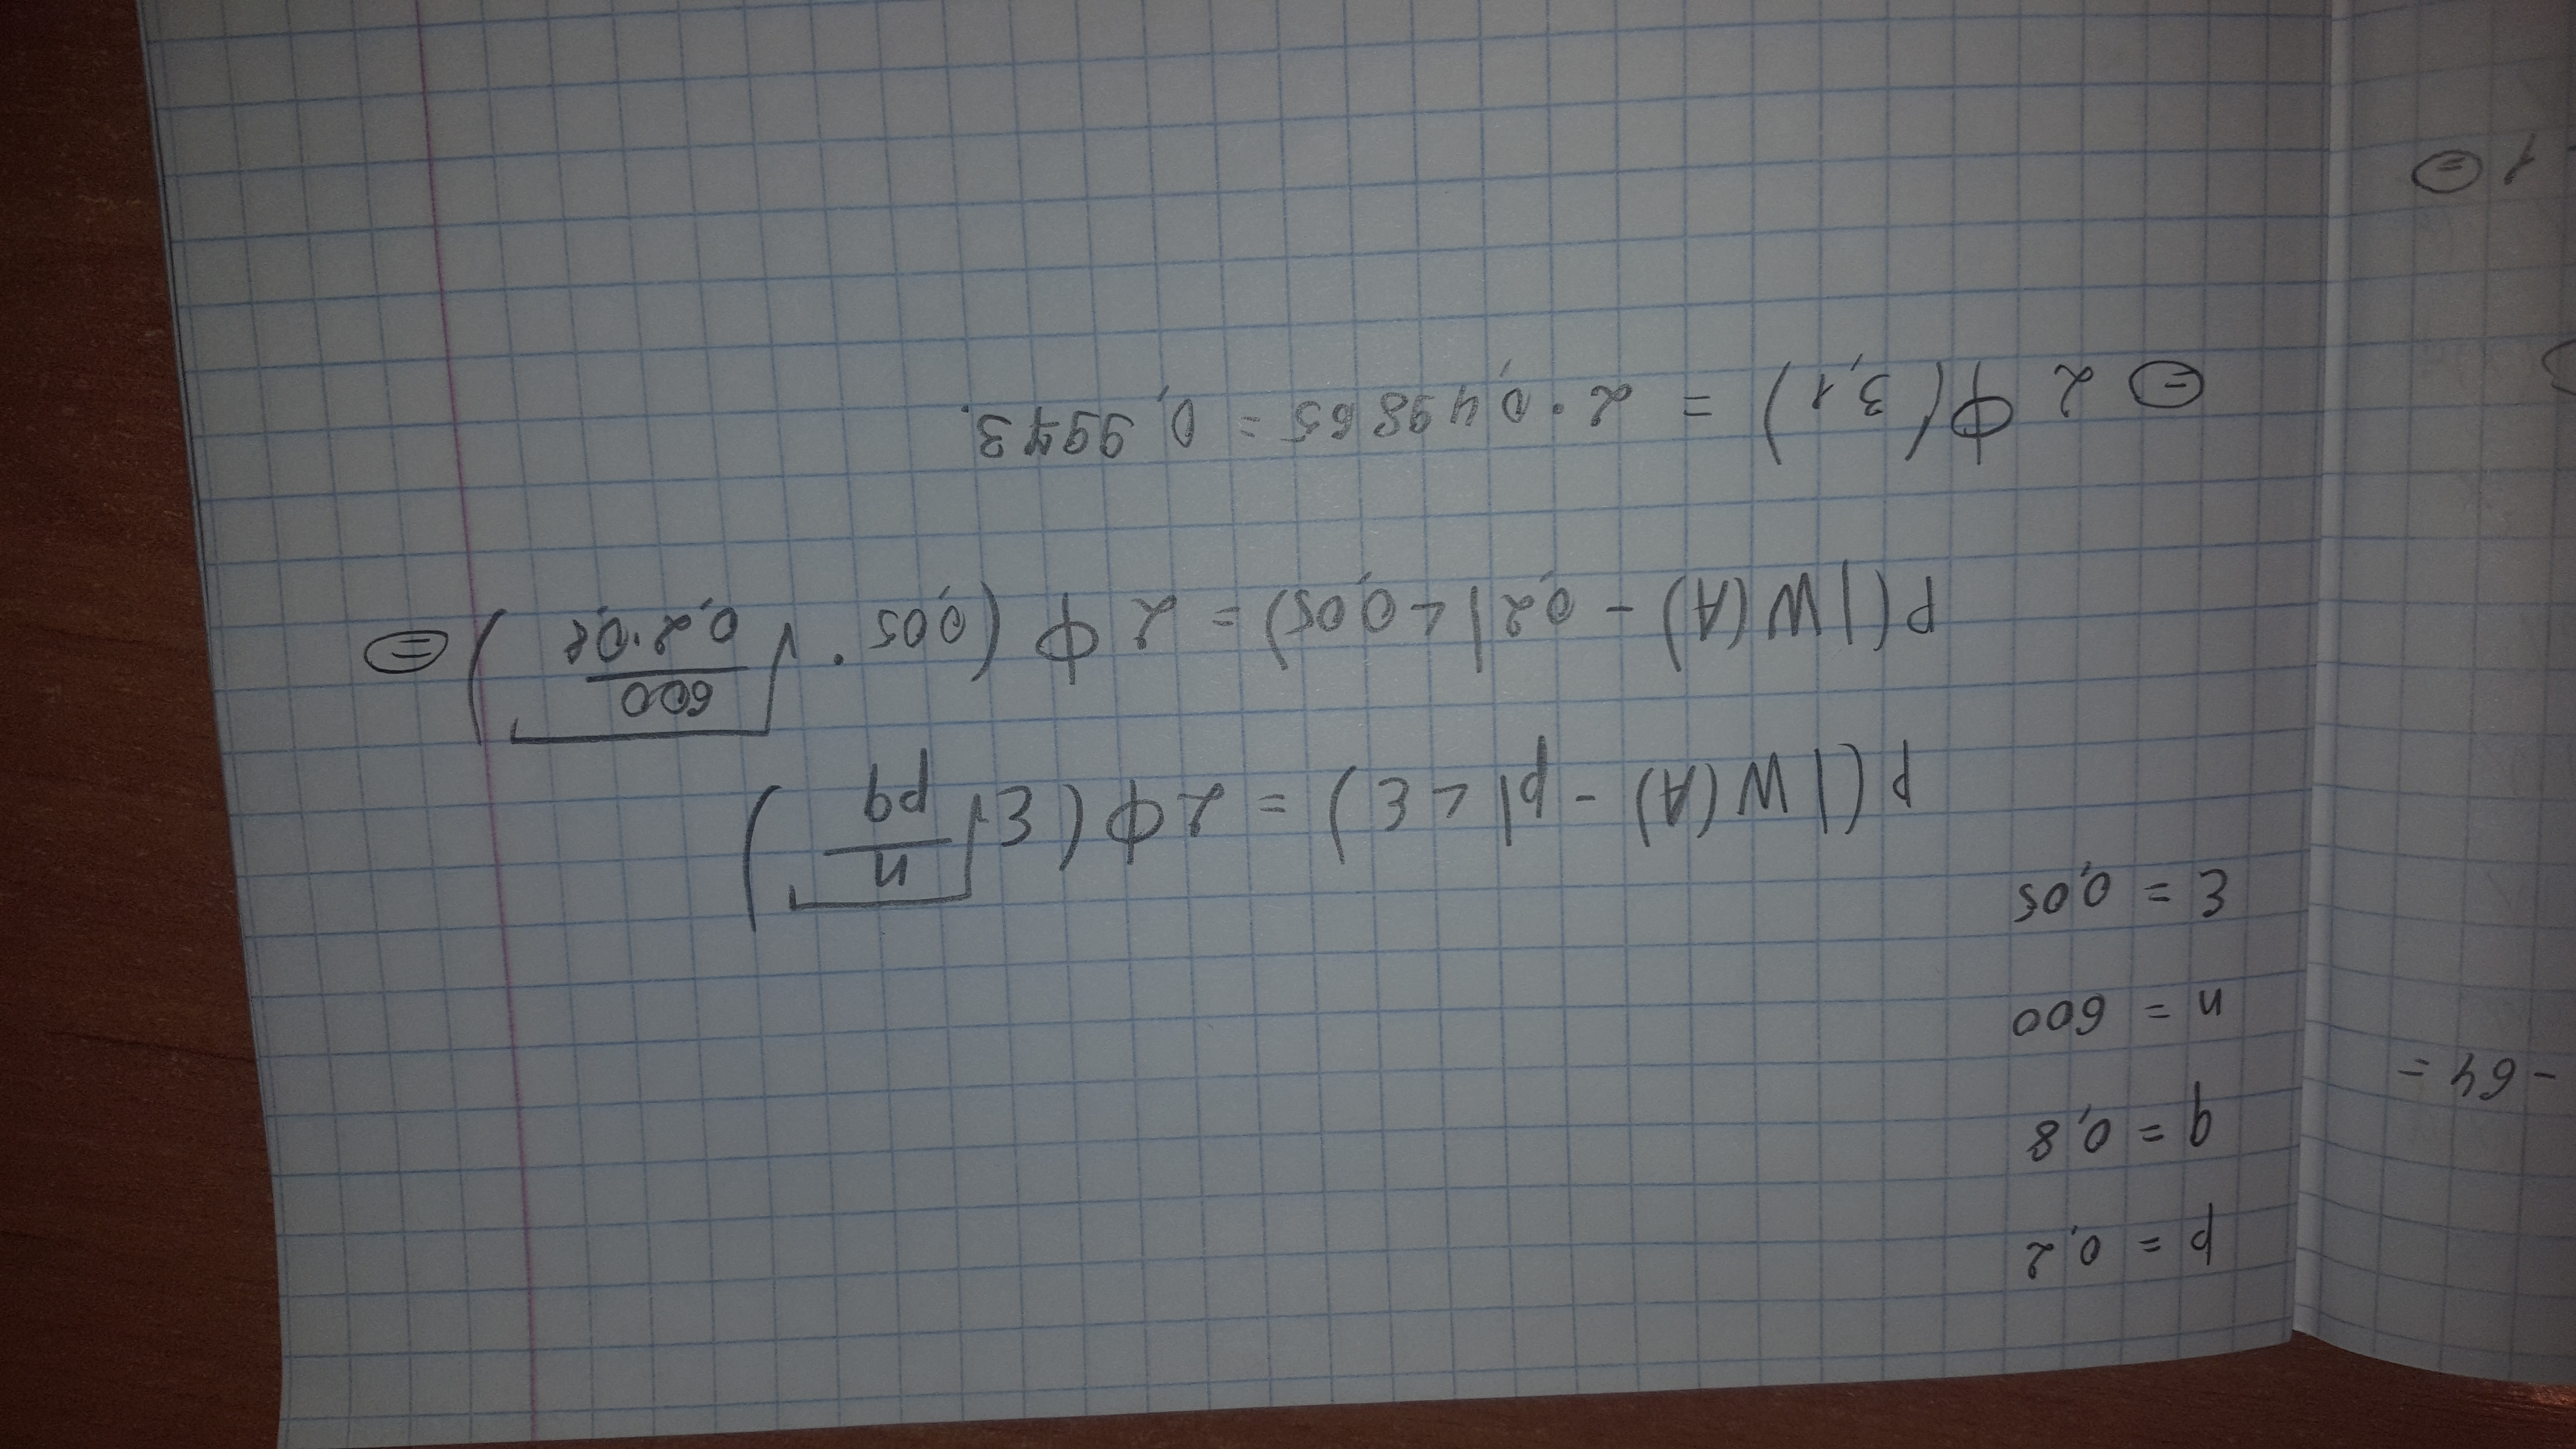 p = 0,2
q = 0,8
n = 600
ε = 0,05
P(|W(A) - p| < ε) = 2Φ(ε√(n/pq))
P(|W(A) - 0,2| < 0,05) = 2Φ(0,05 · √(600/0,2·0,8)) ⊜
⊜ 2Φ(3,1) = 2·0,49865 = 0,9973.
- 64 =
1 ⊜